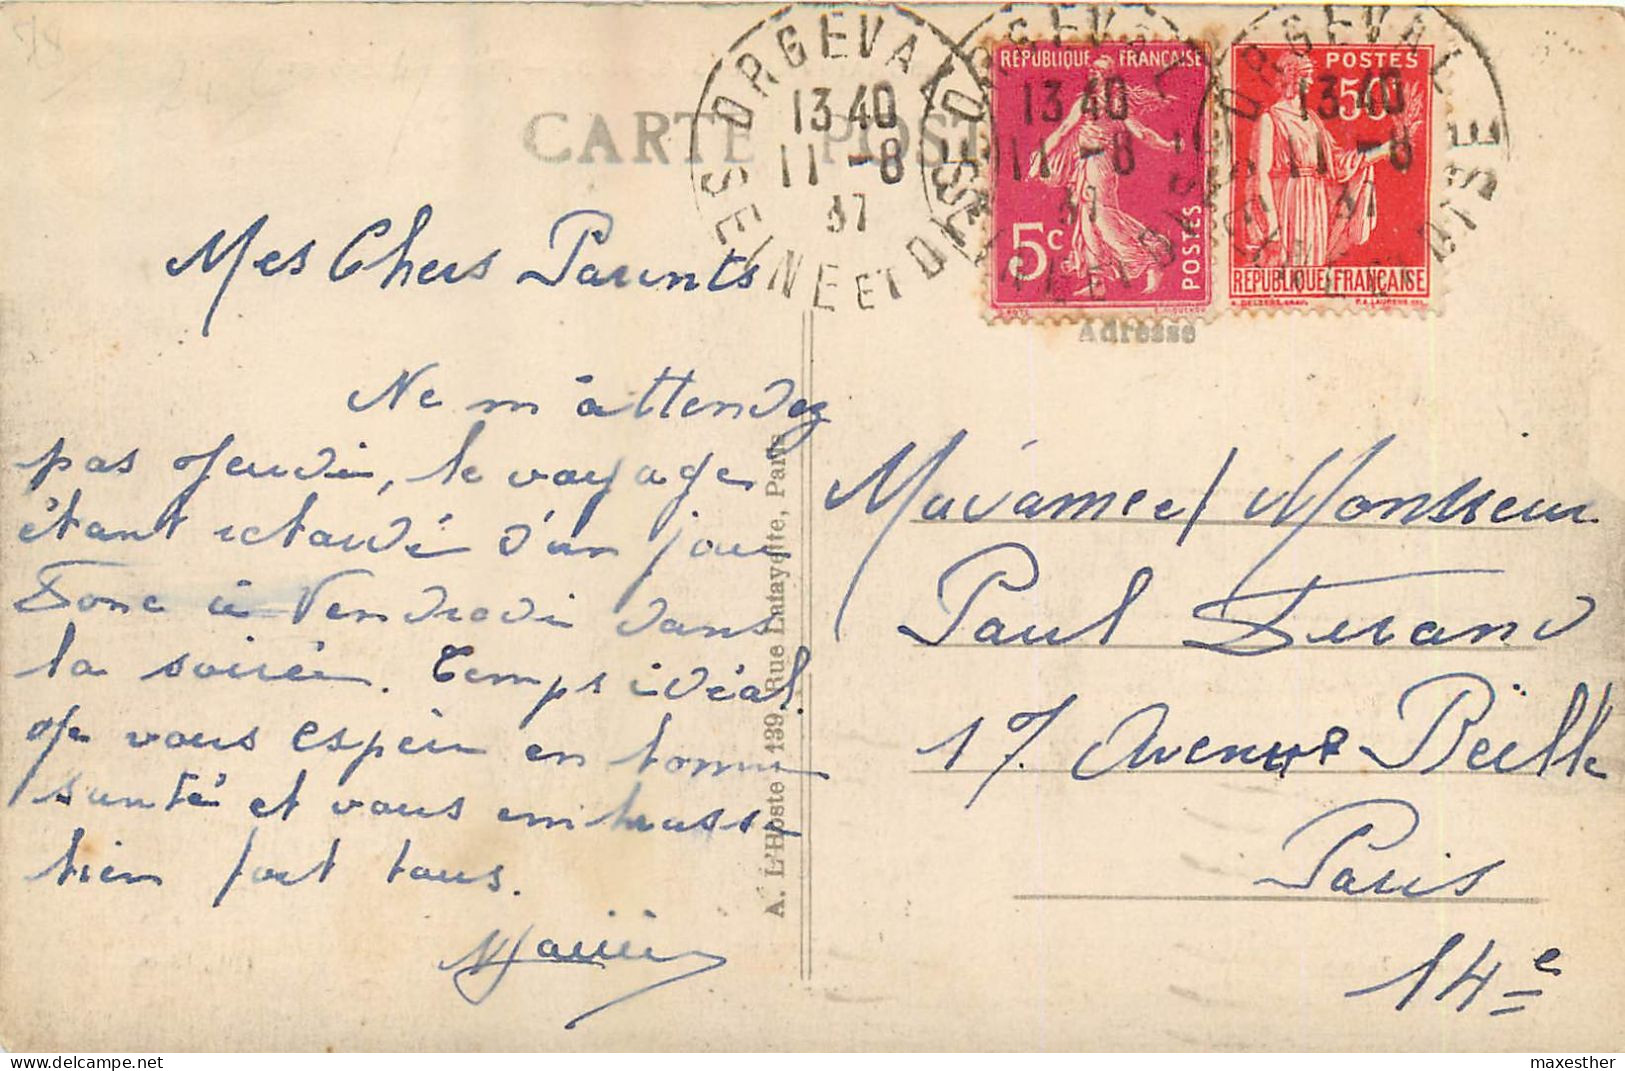 CARTE POST
ORGEVAL
13 40
11 -8
37
SEINE ET OISE
REPUBLIQUE FRANÇAISE
5c
POSTES
POSTES
50c
REPUBLIQUE FRANÇAISE
Adresse
Mes Chers Parents
Ne m'attendez
pas Jeudi, le voyage
étant retardé d'un jour
Donc à Vendredi dans
la soirée. Temps idéal.
Je vous espère en bonne
santé et vous embrasse
bien fort tous.
A. L'Hoste 139, Rue Lafayette, Paris
Madame et Monsieur
Paul Durand
17 Avenue Reille
Paris
14e
maxesther